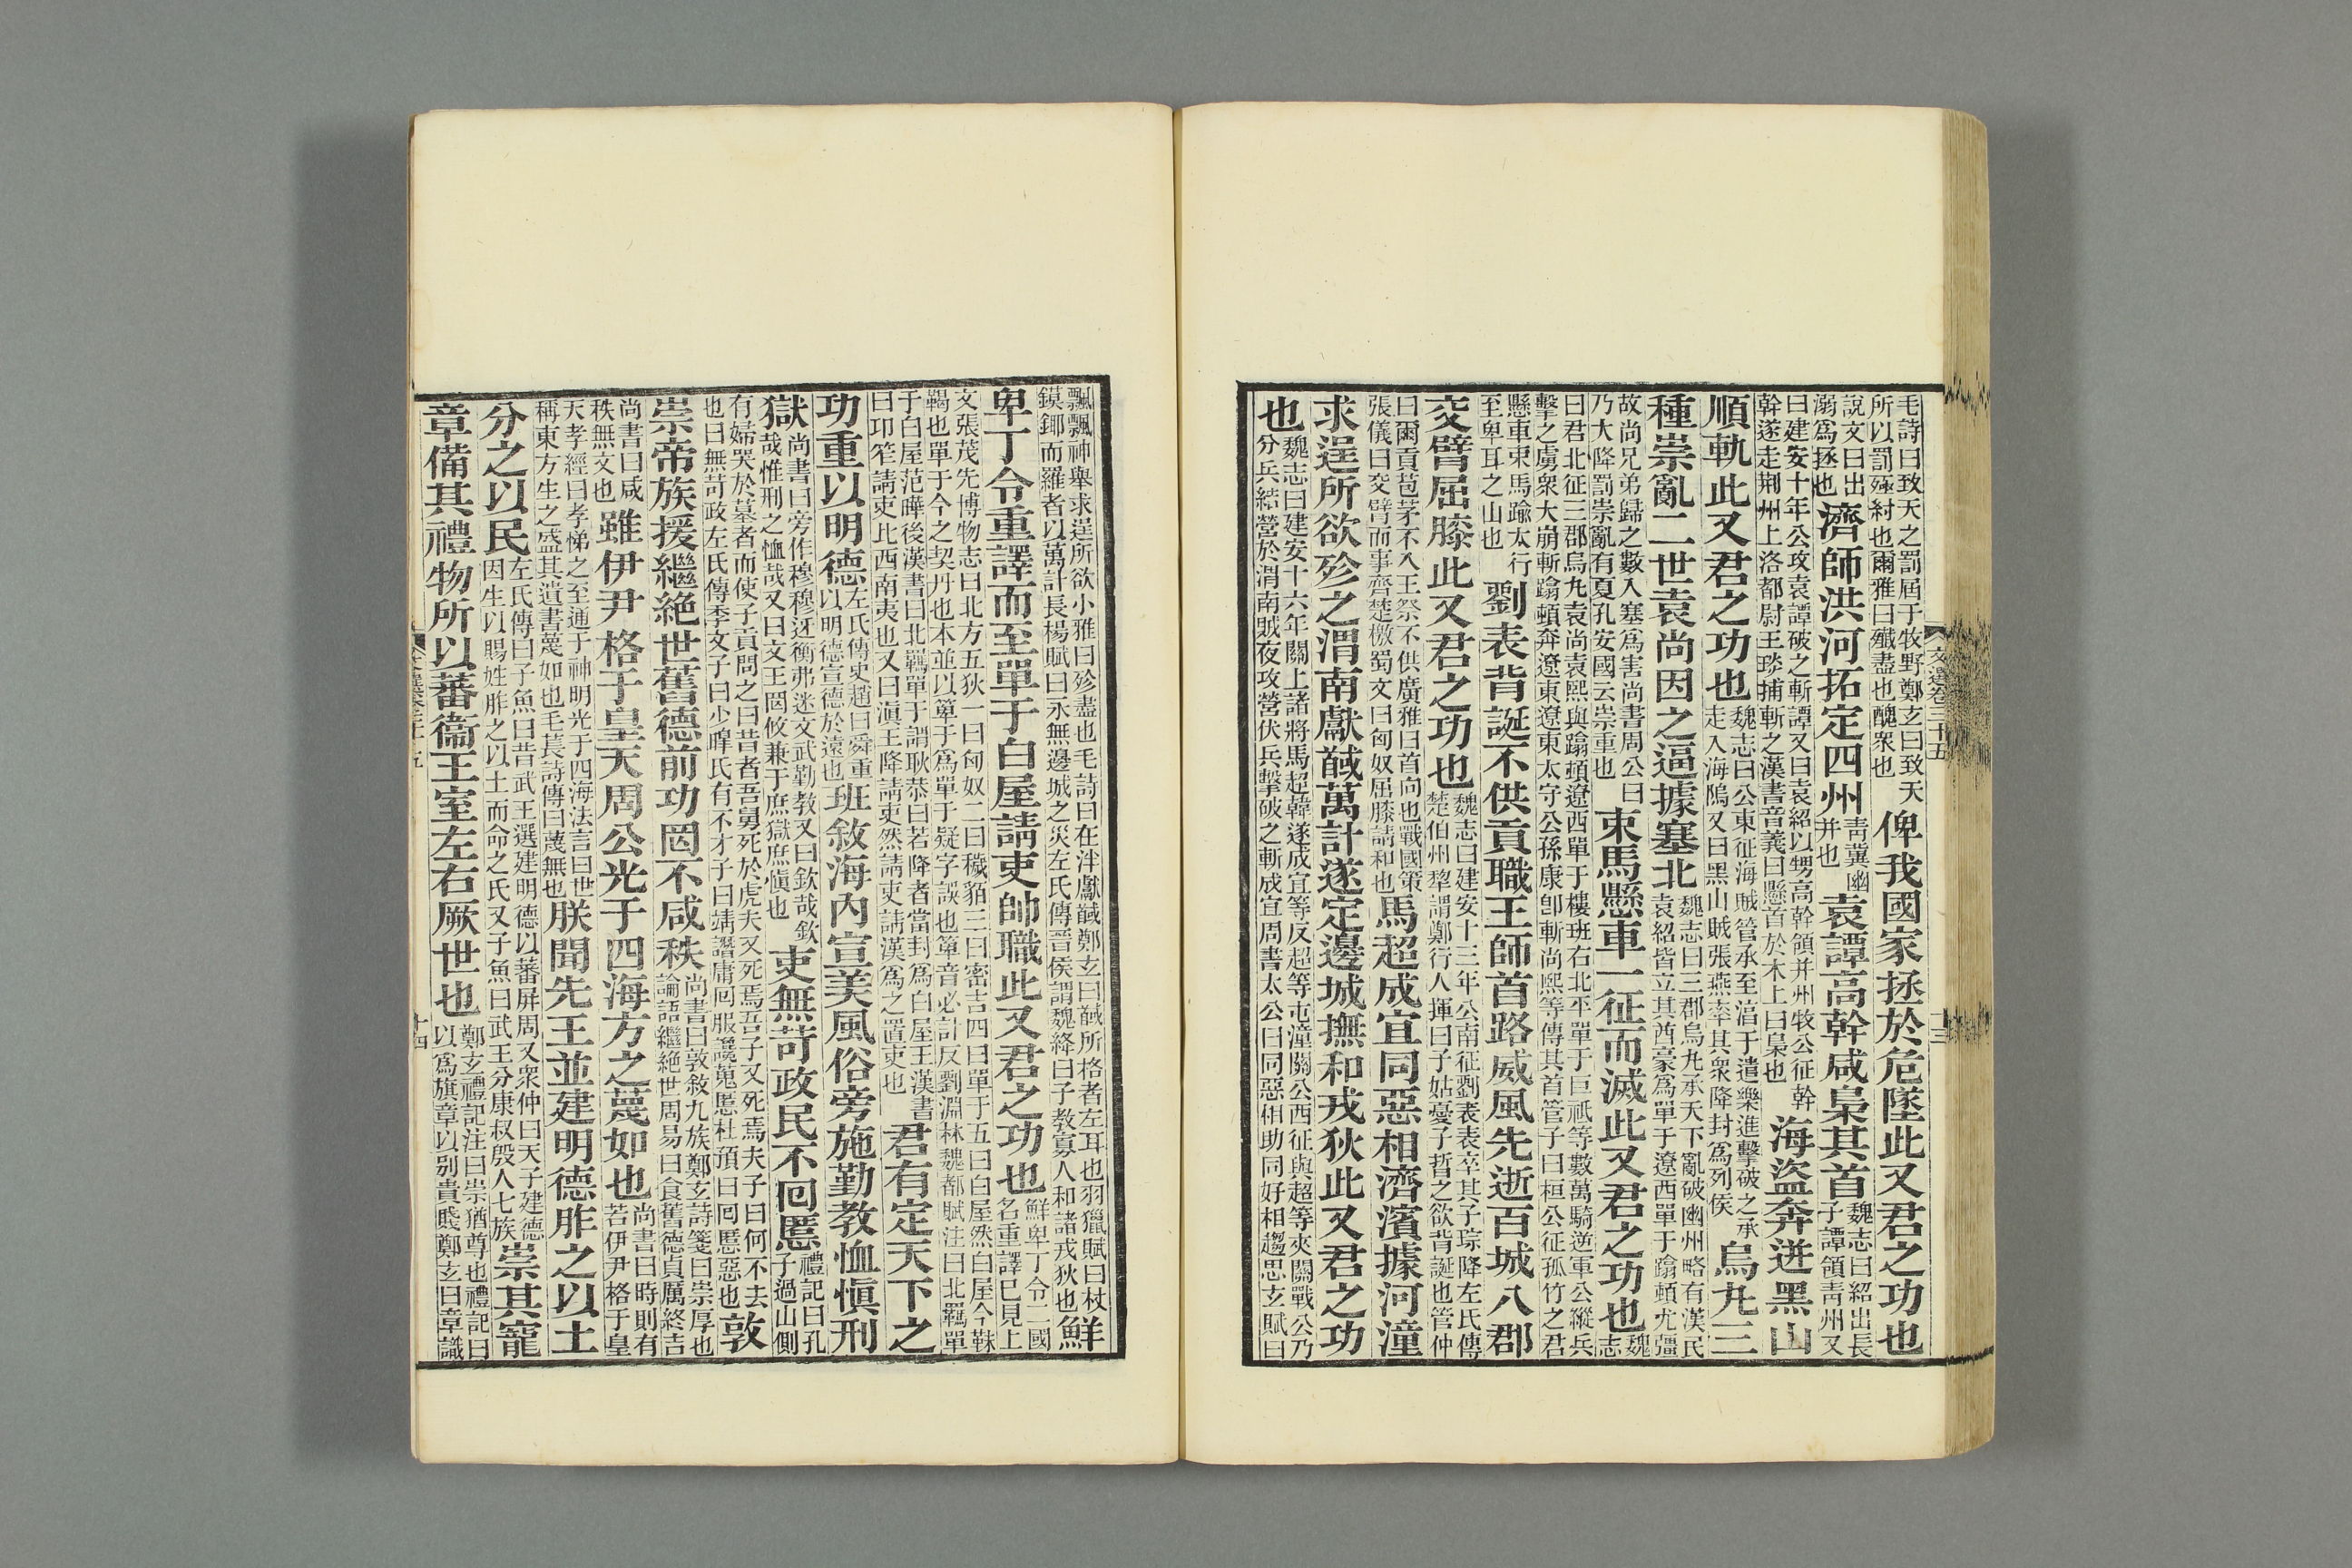 毛詩曰致天之罰屆于牧野鄭玄曰致天
所以罰殛紂也爾雅曰殲盡也醜衆也
俾我國家拯於危墜此又君之功也
說文曰出
溺爲拯也
濟師洪河拓定四州
青冀幽
并也
袁譚高幹咸梟其首
魏志曰紹出長
子譚領青州又
曰建安十年公攻袁譚破之斬譚又曰袁紹以甥高幹領并州牧公征幹
幹遂走荆州上洛都尉王琰捕斬之漢書音義曰懸首於木上曰梟也
海盜奔迸黑山
順軌此又君之功也
魏志曰公東征海賊管承至淯于遣樂進擊破之承
走入海隝又曰黑山賊張燕率其衆降封爲列侯
烏九三
種崇亂二世袁尚因之逼據塞北
魏志曰三郡烏九承天下亂破幽州略有漢民
袁紹皆立其酋豪爲單于遼西單于蹋頓尤彊
故尚兄弟歸之數入塞爲害尚書周公曰
乃大降罰崇亂有夏孔安國云崇重也
束馬懸車一征而滅此又君之功也
魏
志
曰君北征三郡烏九袁尚袁熙與蹋頓遼西單于樓班右北平單于巨祗等數萬騎逆軍公縱兵
擊之虜衆大崩斬蹋頓奔遼東遼東太守公孫康卽斬尚熙等傳其首管子曰桓公征孤竹之君
懸車束馬踰太行
至卑耳之山也
劉表背誕不供貢職王師首路威風先逝百城八郡
交臂屈膝此又君之功也
魏志曰建安十三年公南征劉表表卒其子琮降左氏傳
楚伯州犂謂鄭行人揮曰子姑憂子晳之欲背誕也管仲
曰爾貢苞茅不入王祭不供廣雅曰首向也戰國策
張儀曰交臂而事齊楚檄蜀文曰匈奴屈膝請和也
馬超成宜同惡相濟濱據河潼
求逞所欲殄之渭南獻馘萬計遂定邊城撫和戎狄此又君之功
也
魏志曰建安十六年關上諸將馬超韓遂成宜等反超等屯潼關公西征與超等夾關戰公乃
分兵結營於渭南賊夜攻營伏兵擊破之斬成宜周書太公曰同惡相助同好相趨思玄賦曰
飄飄神舉求逞所欲小雅曰殄盡也毛詩曰在泮獻馘鄭玄曰馘所格者左耳也羽獵賦曰杖
鏌鋣而羅者以萬計長楊賦曰永無邊城之災左氏傳晉侯謂魏絳曰子教寡人和諸戎狄也
鮮
卑丁令重譯而至單于白屋請吏帥職此又君之功也
鮮卑丁令二國
名重譯已見上
文張茂先博物志曰北方五狄一曰匈奴二曰穢貊三曰密吉四曰單于五曰白屋然白屋今靺
鞨也單于今之契丹也本並以箄于爲單于疑字誤也箄音必計反劉淵林魏都賦注曰北羈單
于白屋范曄後漢書曰北羈單于謂耿恭曰若降者當封爲白屋王漢書
曰卭笮請吏比西南夷也又曰滇王降請吏然請吏請漢爲之置吏也
君有定天下之
功重以明德
左氏傳史趙曰舜重
以明德宣德於遠也
班敘海內宣美風俗旁施勤教恤愼刑
獄
尚書曰旁作穆穆迓衡弗迷文武勤教又曰欽哉欽
哉惟刑之恤哉又曰文王罔攸兼于庶獄庶愼也
吏無苛政民不回慝
禮記曰孔
子過山側
有婦哭於墓者而使子貢問之曰昔者吾舅死於虎夫又死焉吾子又死焉夫子曰何不去
也曰無苛政左氏傳季文子曰少皞氏有不才子曰靖譖庸回服讒蒐慝杜預曰回慝惡也
敦
崇帝族援繼絕世舊德前功罔不咸秩
尚書曰敦敘九族鄭玄詩箋曰崇厚也
論語繼絕世周易曰食舊德貞厲終吉
尚書曰咸
秩無文也
雖伊尹格于皇天周公光于四海方之蔑如也
尚書曰時則有
若伊尹格于皇
天孝經曰孝悌之至通于神明光于四海法言曰世
稱東方生之盛其遺書蔑如也毛萇詩傳曰蔑無也
朕聞先王並建明德胙之以土
分之以民
左氏傳曰子魚曰昔武王選建明德以蕃屏周又衆仲曰天子建德
因生以賜姓胙之以土而命之氏又子魚曰武王分康叔殷人七族
崇其寵
章備其禮物所以蕃衞王室左右厥世也
鄭玄禮記注曰崇猶尊也禮記曰
以爲旗章以别貴賤鄭玄曰章識
文選卷三十五
十三
十四